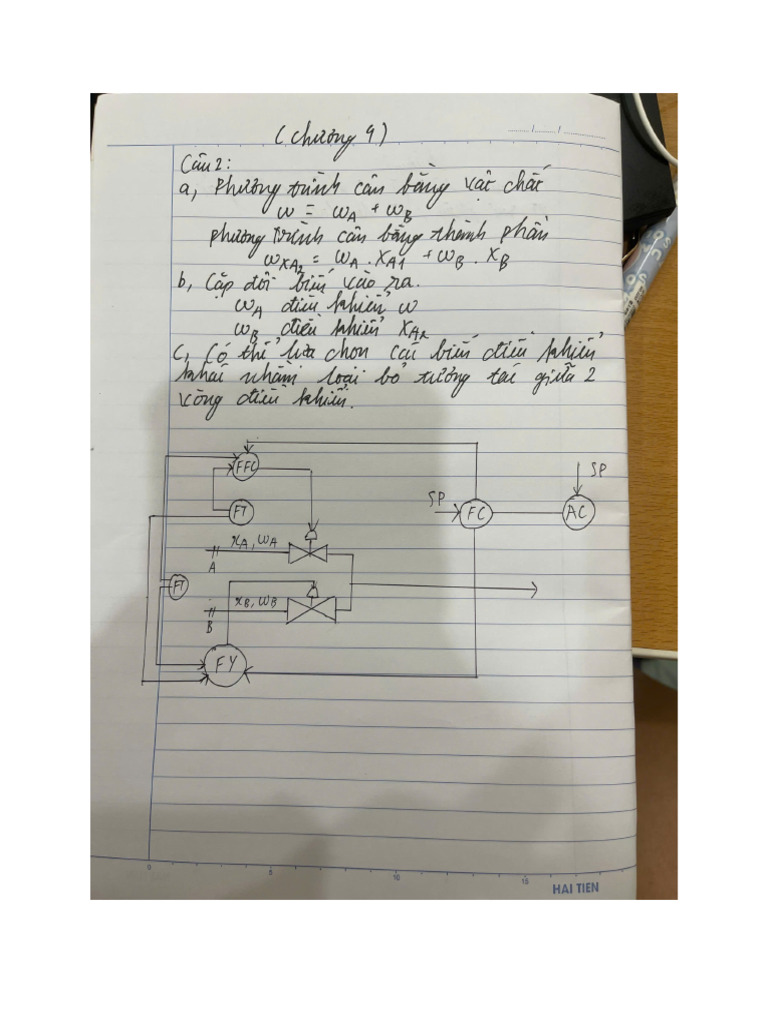 (Chương 9)
Câu 2:
a, Phương trình cân bằng vật chất
w = wA + wB
phương trình cân bằng thành phần
wxA2 = wA . xA1 + wB . xB
b, Cặp đôi biến vào ra.
wA điều khiển w
wB điều khiển xA2
c, Có thể lựa chọn các biến điều khiển
khác nhằm loại bỏ tương tác giữa 2
vòng điều khiển.
FFC
SP
SP
FT
FC
AC
xA, wA
A
FT
xB, wB
B
FY
0 5 10 15
HAI TIEN